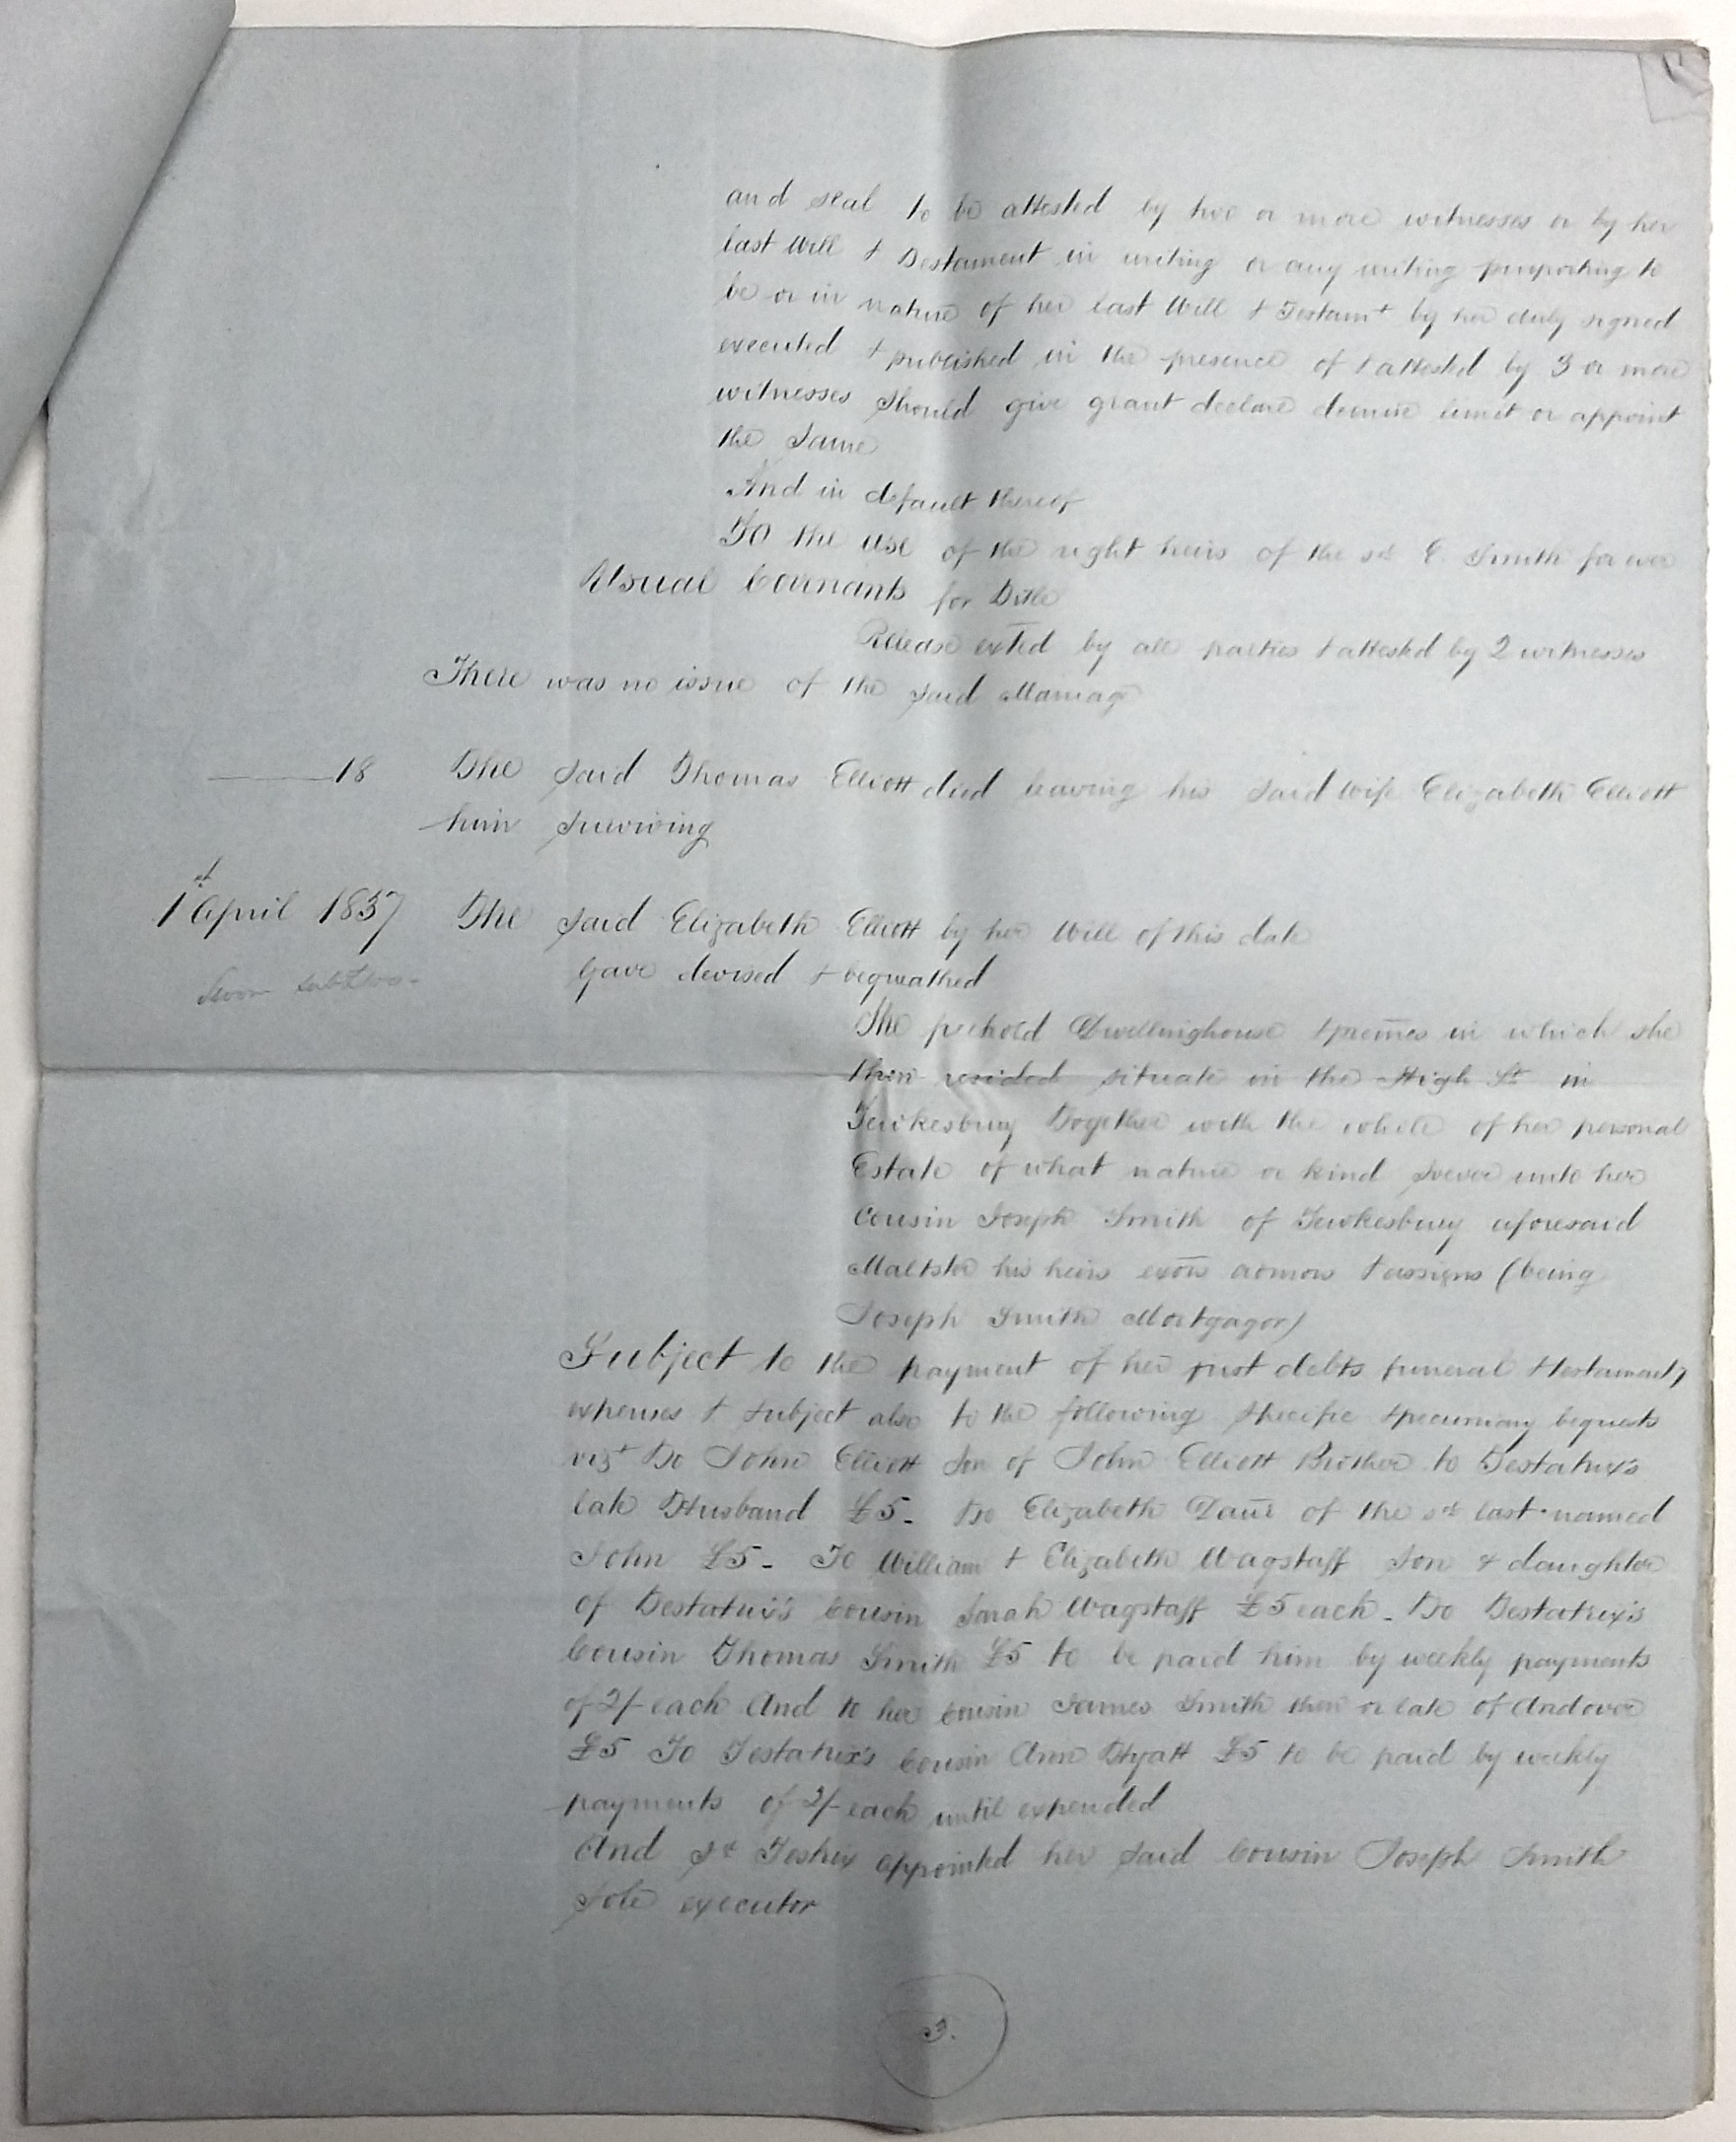 and seal to be attested by two or more witnesses or by her
last Will & Testament in writing or any writing purporting to
be or in nature of her last Will & Testamt by her duly signed
executed & published in the presence of & attested by 3 or more
witnesses should give grant declare demise limit or appoint
the same
And in default thereof
To the use of the right heirs of the sd E. Smith for ever
Usual Covenants for Title
Release exted by all parties & attested by 2 witnesses
There was no issue of the said Marriage
18 The said Thomas Elliott died leaving his said wife Elizabeth Elliott
him surviving
1st April 1837 The said Elizabeth Elliott by her Will of this date
Gave devised & bequeathed
The freehold Dwellinghouse & premes in which she
then resided situate in the High St in
Tewkesbury Together with the whole of her personal
Estate of what nature or kind soever unto her
Cousin Joseph Smith of Tewkesbury aforesaid
Maltster his heirs exors admors & assigns (being
Joseph Smith Mortgagor)
Subject to the payment of her just debts funeral & testamenty
expenses & subject also to the following specific & pecuniary bequests
vizt To John Elliott Son of John Elliott Brother to Testatrix's
late Husband £5- To Elizabeth Daur of the sd last named
John £5- To William & Elizabeth Wagstaff Son & daughter
of Testatrix's Cousin Sarah Wagstaff £5 each- To Testatrix's
Cousin Thomas Smith £5 to be paid him by weekly payments
of 2/- each And to her Cousin James Smith then or late of Andover
£5 To Testatrix's Cousin Ann Hyatt £5 to be paid by weekly
payments of 2/- each until expended
And sd Testrix appointed her said Cousin Joseph Smith
Sole executor
3.